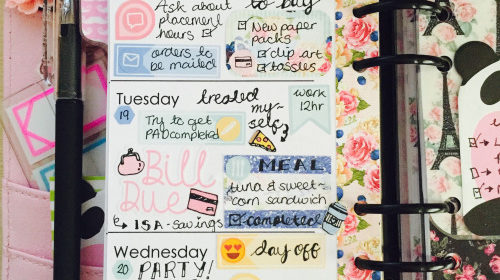 Ask about
placement
hours
to buy
New paper
packs
clip art
tassles
orders to
be mailed
Tuesday
19
treated
my-
self
work
12hr
Try to get
PAD completed
Bill
Due
ISA - savings
MEAL
tuna & sweet-
corn sandwich
completed
Wednesday
20
PARTY!
day off